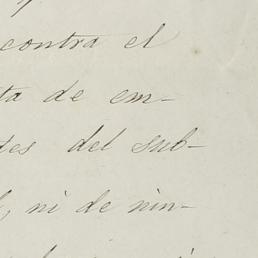 contra el
ta de em-
des del sub-
, ni de nin-